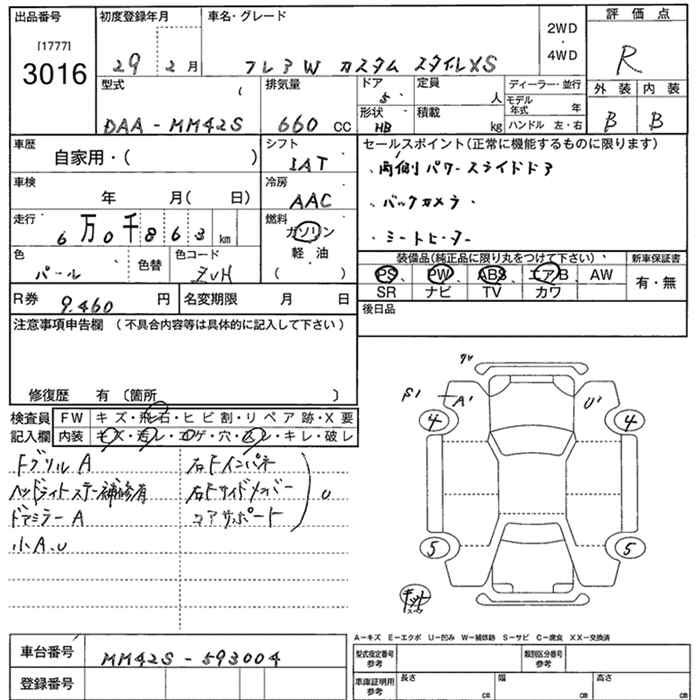 出品番号
[1777]
3016
初度登録年月
29 2月
車名・グレード
フレアW カスタム スタイルXS
2WD
・
4WD
評価点
R
外装 内装
B B
型式
DAA-MM42S
排気量
660 CC
ドア
5
形状
HB
定員
人
積載
kg
ディーラー・並行
モデル年式 年
ハンドル 左・右
車歴
自家用・( )
シフト
IAT
車検
年 月( 日)
冷房
AAC
走行
6万0千863km
燃料
ガソリン
軽油
( )
色
パール
色替
色コード
ZVH
R券
9,460 円
名変期限 月 日
セールスポイント(正常に機能するものに限ります)
、両側パワースライドドア
、バックカメラ
、シートヒーター
装備品(純正品に限り丸をつけて下さい)
PS PW ABS エアB AW
SR ナビ TV カワ
新車保証書
有・無
後日品
注意事項申告欄 (不具合内容等は具体的に記入して下さい)
修復歴 有 〔箇所 〕
検査員記入欄
FW キズ・飛石・ヒビ割・リペア跡・X要
内装 キズ・汚レ・コゲ・穴・スレ・キレ・破レ
Fグリル A
ヘッドライトステー補修有
ドアミラー A
小A、U
右Fインパネ
右Fサイドメンバー
コアサポート
U
A'
U'
4
4
5
5
A-キズ E-エクボ U-凹み W-補修跡 S-サビ C-腐食 XX-交換済
車台番号
MM42S-593004
登録番号
型式指定番号
参考
類別区分番号
参考
車庫証明用
参考
長さ cm
幅 cm
高さ cm